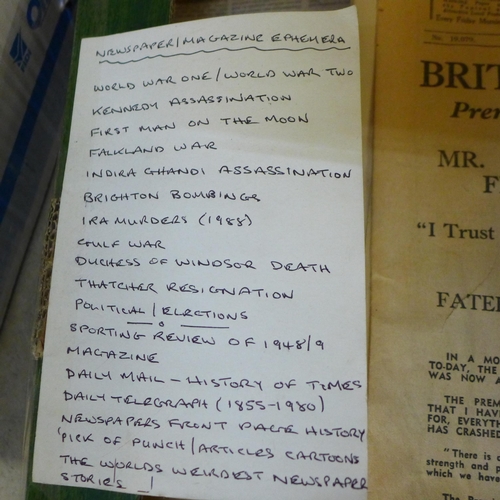 NEWSPAPER/MAGAZINE EPHEMERA
WORLD WAR ONE/WORLD WAR TWO
KENNEDY ASSASSINATION
FIRST MAN ON THE MOON
FALKLAND WAR
INDIRA GHANDI ASSASSINATION
BRIGHTON BOMBINGS
IRA MURDERS (1988)
GULF WAR
DUCHESS OF WINDSOR DEATH
THATCHER RESIGNATION
POLITICAL/ELECTIONS
SPORTING REVIEW OF 1948/9
MAGAZINE
DAILY MAIL - HISTORY OF TIMES
DAILY TELEGRAPH (1855-1980)
NEWSPAPERS FRONT PAGE HISTORY
'PICK OF PUNCH/ARTICLES CARTOONS
THE WORLDS WEIRDEST NEWSPAPER
STORIES !
BRIT
Prem
MR.
F
"I Trust
FATE
IN A MO
TO-DAY, THE
WAS NOW A
THE PREM
THAT I HAV
FOR, EVERYTH
HAS CRASHED
"There is
strength and
which we hav